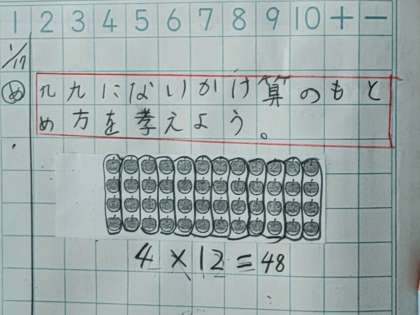 1 2 3 4 5 6 7 8 9 10 + −
1/17
め 九九にないかけ算のもと
め方を考えよう。
4×12=48